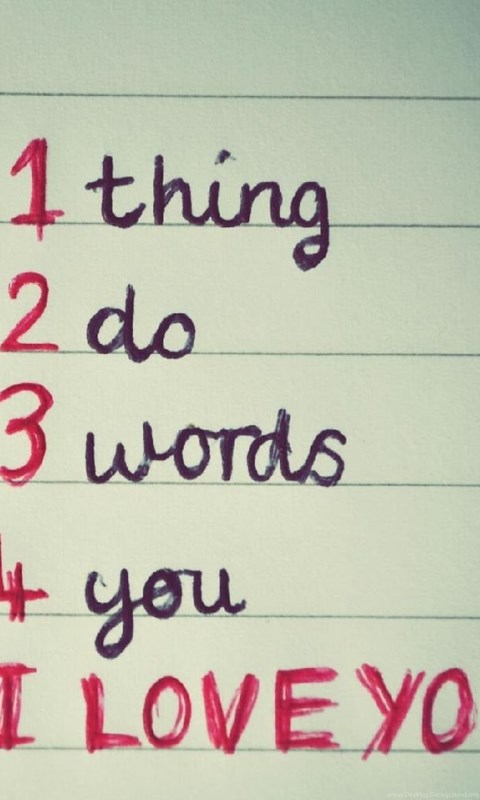 1 thing
2 do
3 words
4 you
I LOVE YO